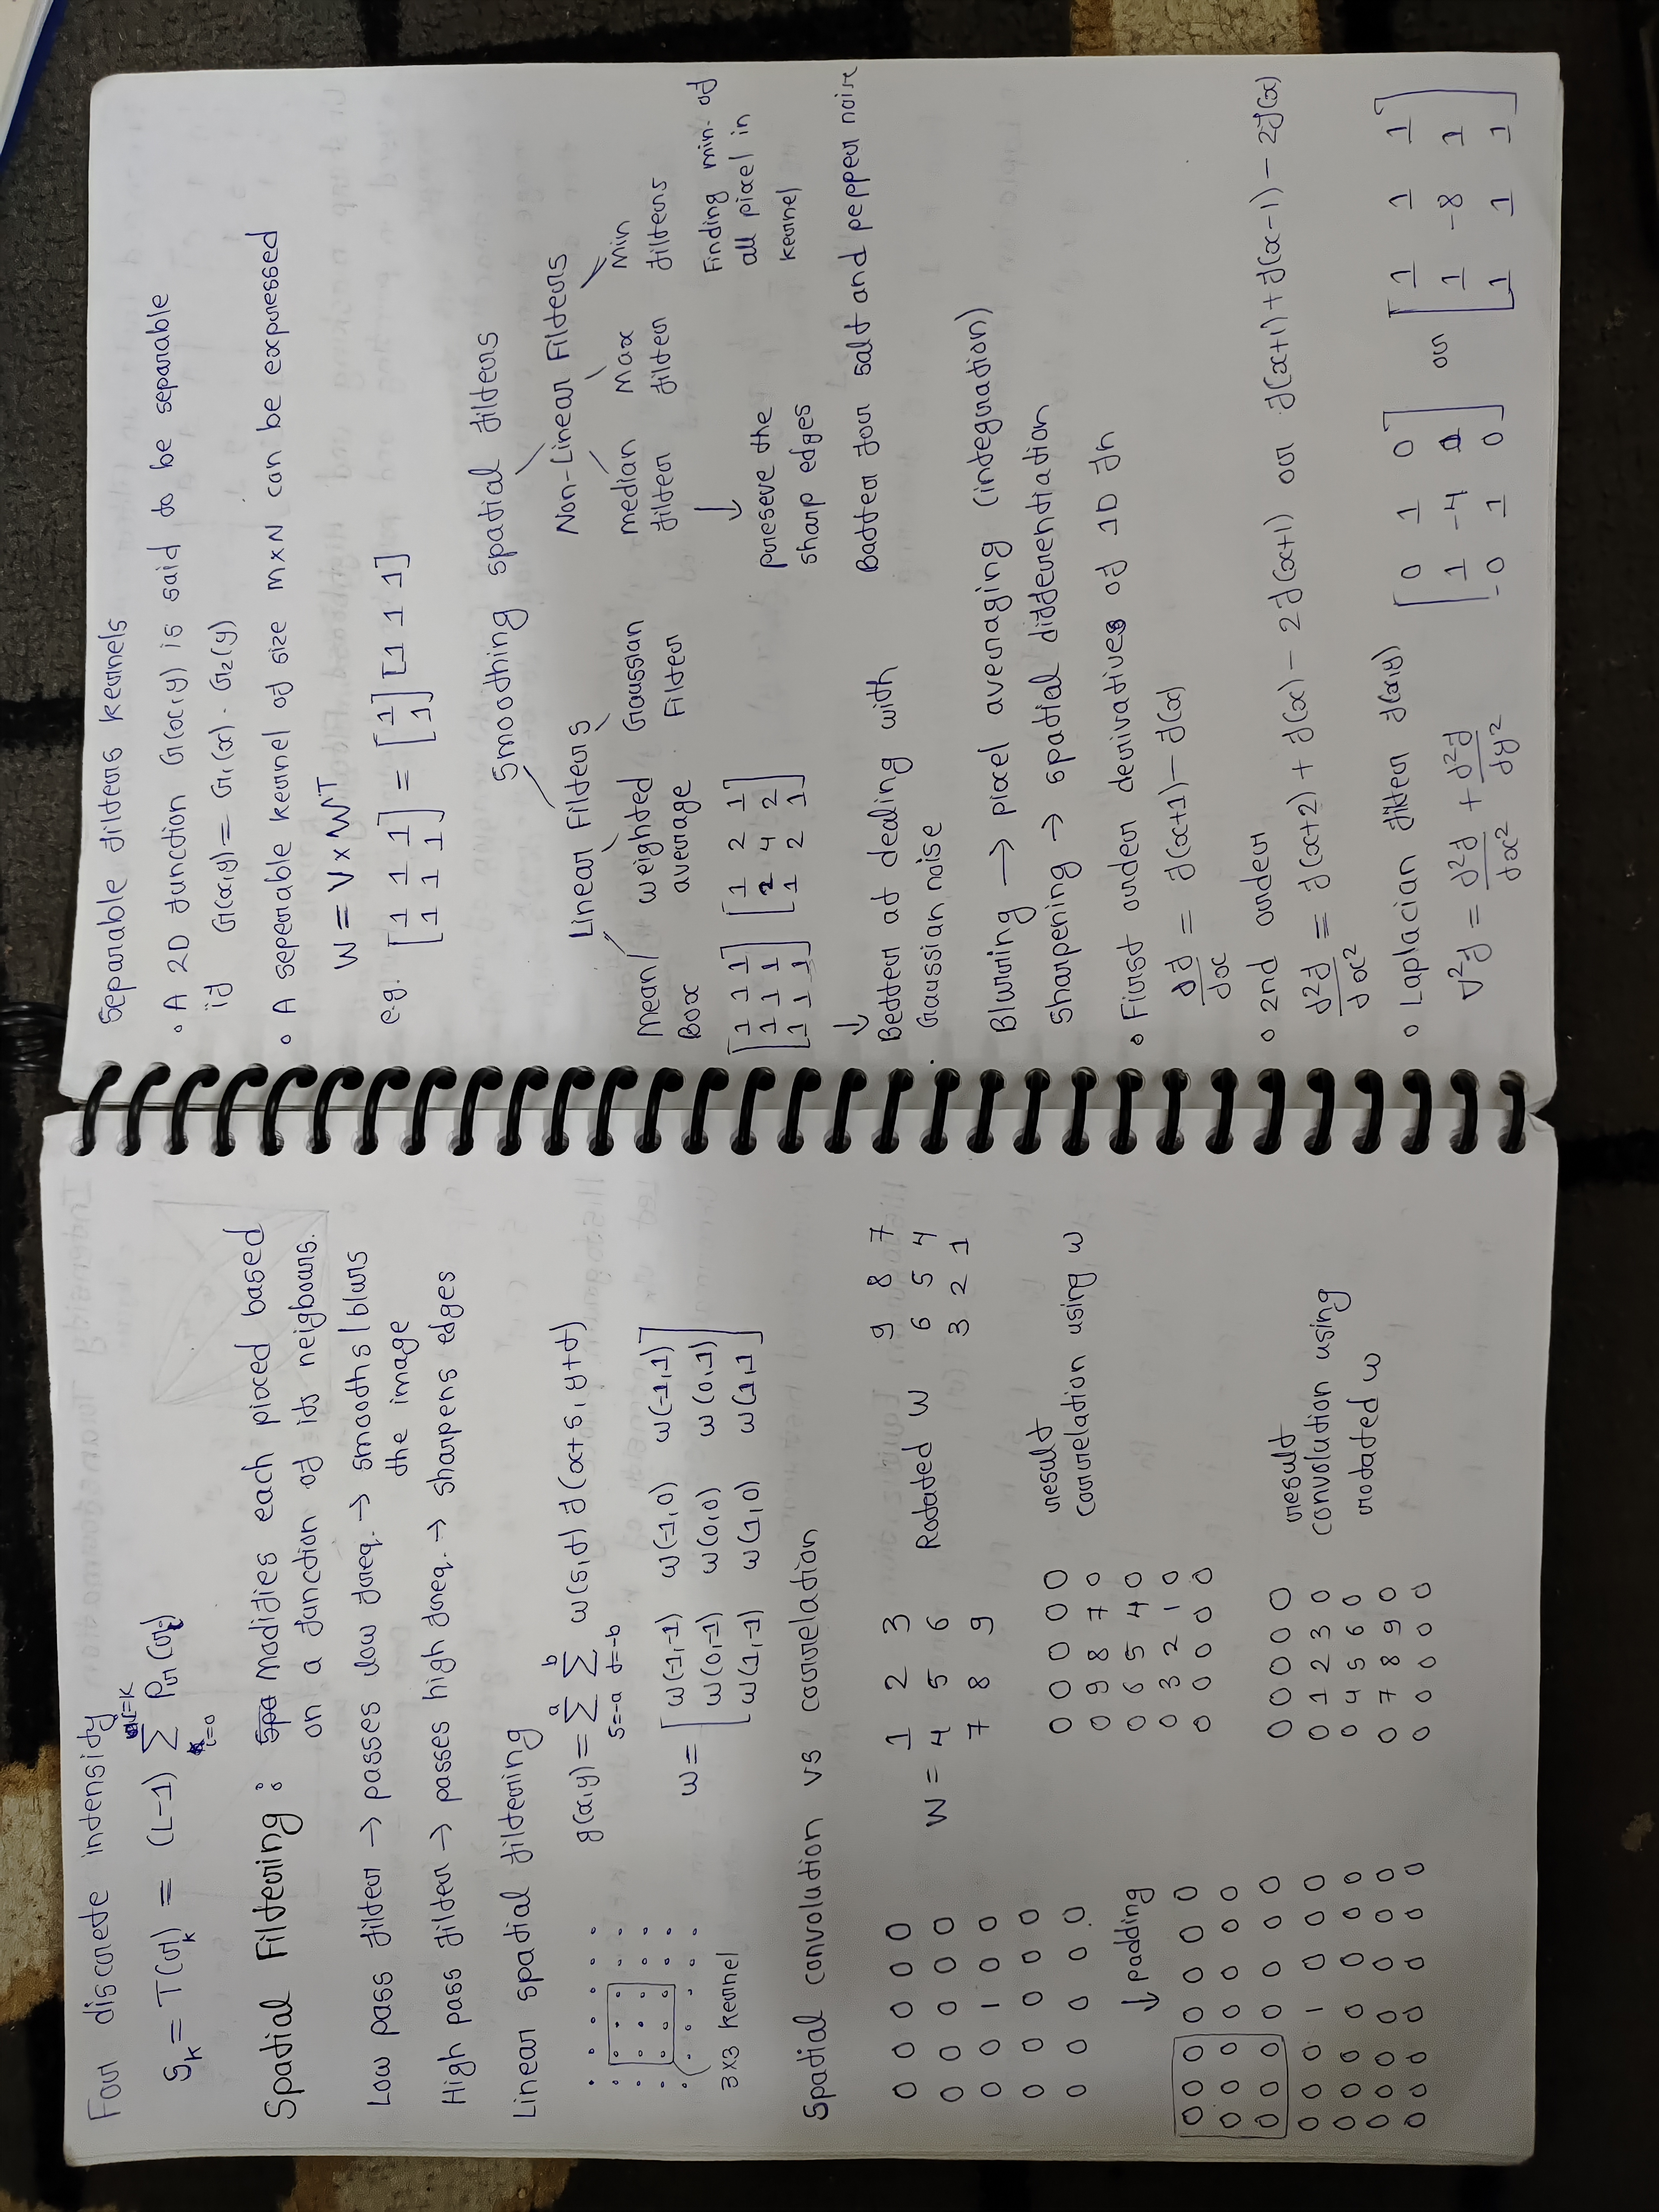 For discrete intensity
S_k = T(r_k) = (L-1) Σ_{i=0}^{r=k} P_r(r_i)
Spatial Filtering : Modifies each pixced based
on a function of its neigbours.
Low pass filter → passes low freq. → smooths / blurs
the image
High pass filter → passes high freq. → sharpens edges
Linear spatial filtering
g(x,y) = Σ_{s=-a}^{a} Σ_{t=-b}^{b} w(s,t) f(x+s, y+t)
3x3 kernel
w = [ w(-1,-1) w(-1,0) w(-1,1)
w(0,-1) w(0,0) w(0,1)
w(1,-1) w(1,0) w(1,1) ]
Spatial convolution vs correlation
0 0 0 0 0
0 0 0 0 0
0 0 1 0 0
0 0 0 0 0
0 0 0 0 0
W = 1 2 3
4 5 6
7 8 9
Rotated W 9 8 7
6 5 4
3 2 1
↓ padding
0 0 0 0 0 0 0
0 0 0 0 0 0 0
0 0 0 0 0 0 0
0 0 0 1 0 0 0
0 0 0 0 0 0 0
0 0 0 0 0 0 0
0 0 0 0 0 0 0
0 0 0 0 0
0 9 8 7 0
0 6 5 4 0
0 3 2 1 0
0 0 0 0 0
result
correlation using w
0 0 0 0 0
0 1 2 3 0
0 4 5 6 0
0 7 8 9 0
0 0 0 0 0
result
convolution using
rotated w
Separable filters kernels
• A 2D function G(x,y) is said to be separable
if G(x,y) = G₁(x) . G₂(y)
• A seperable kernel of size m x N can be expressed
W = V x W^T
e.g. [ 1 1 1
1 1 1 ] = [ 1
1 ] [1 1 1]
Smoothing spatial filters
Linear Filters
Non-Linear Filters
Mean/
Box
weighted
average
Gaussian
Filter
median
filter
Max
filter
Min
filters
[ 1 1 1
1 1 1
1 1 1 ]
[ 1 2 1
2 4 2
1 2 1 ]
↓
preseve the
sharp edges
Finding min. of
all pixel in
kernel
↓
Better at dealing with
Gaussian noise
Batter for salt and pepper noise
Blurring → pixel averaging (integration)
Sharpening → spatial differentiation
• First order derivatives of 1D fn
df/dx = f(x+1) - f(x)
• 2nd order
d²f/dx² = f(x+2) + f(x) - 2f(x+1) or f(x+1) + f(x-1) - 2f(x)
• Laplacian filter f(x,y)
∇²f = d²f/dx² + d²f/dy²
[ 0 1 0
1 -4 1
0 1 0 ]
or
[ 1 1 1
1 -8 1
1 1 1 ]